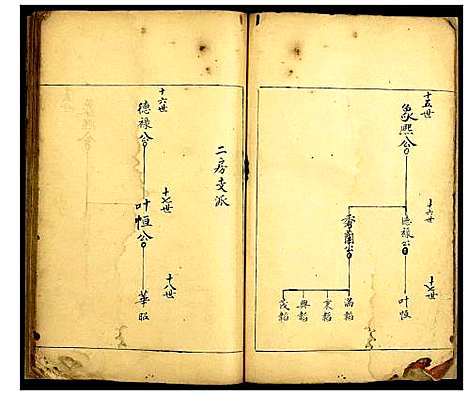 十五世
象熙公
十六世
德禄公
秀蘭公
十七世
叶恒
滿韜
興韜
茂韜
二房支派
十六世
德禄公
十七世
叶恒公
十八世
華